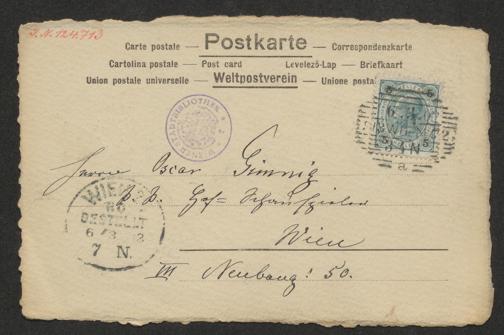 J. N. 124.713
Postkarte
Carte postale — — Correspondenzkarte
Cartolina postale — Post card Levelező-Lap — Briefkaart
Union postale universelle — Weltpostverein — Unione postale
WIENER STADTBIBLIOTHEK
5 5
Herrn Oscar
k. k. Hof-Schauspieler
Wien
VII Neubaug: 50.
WIEN
BESTELLT
7 N.